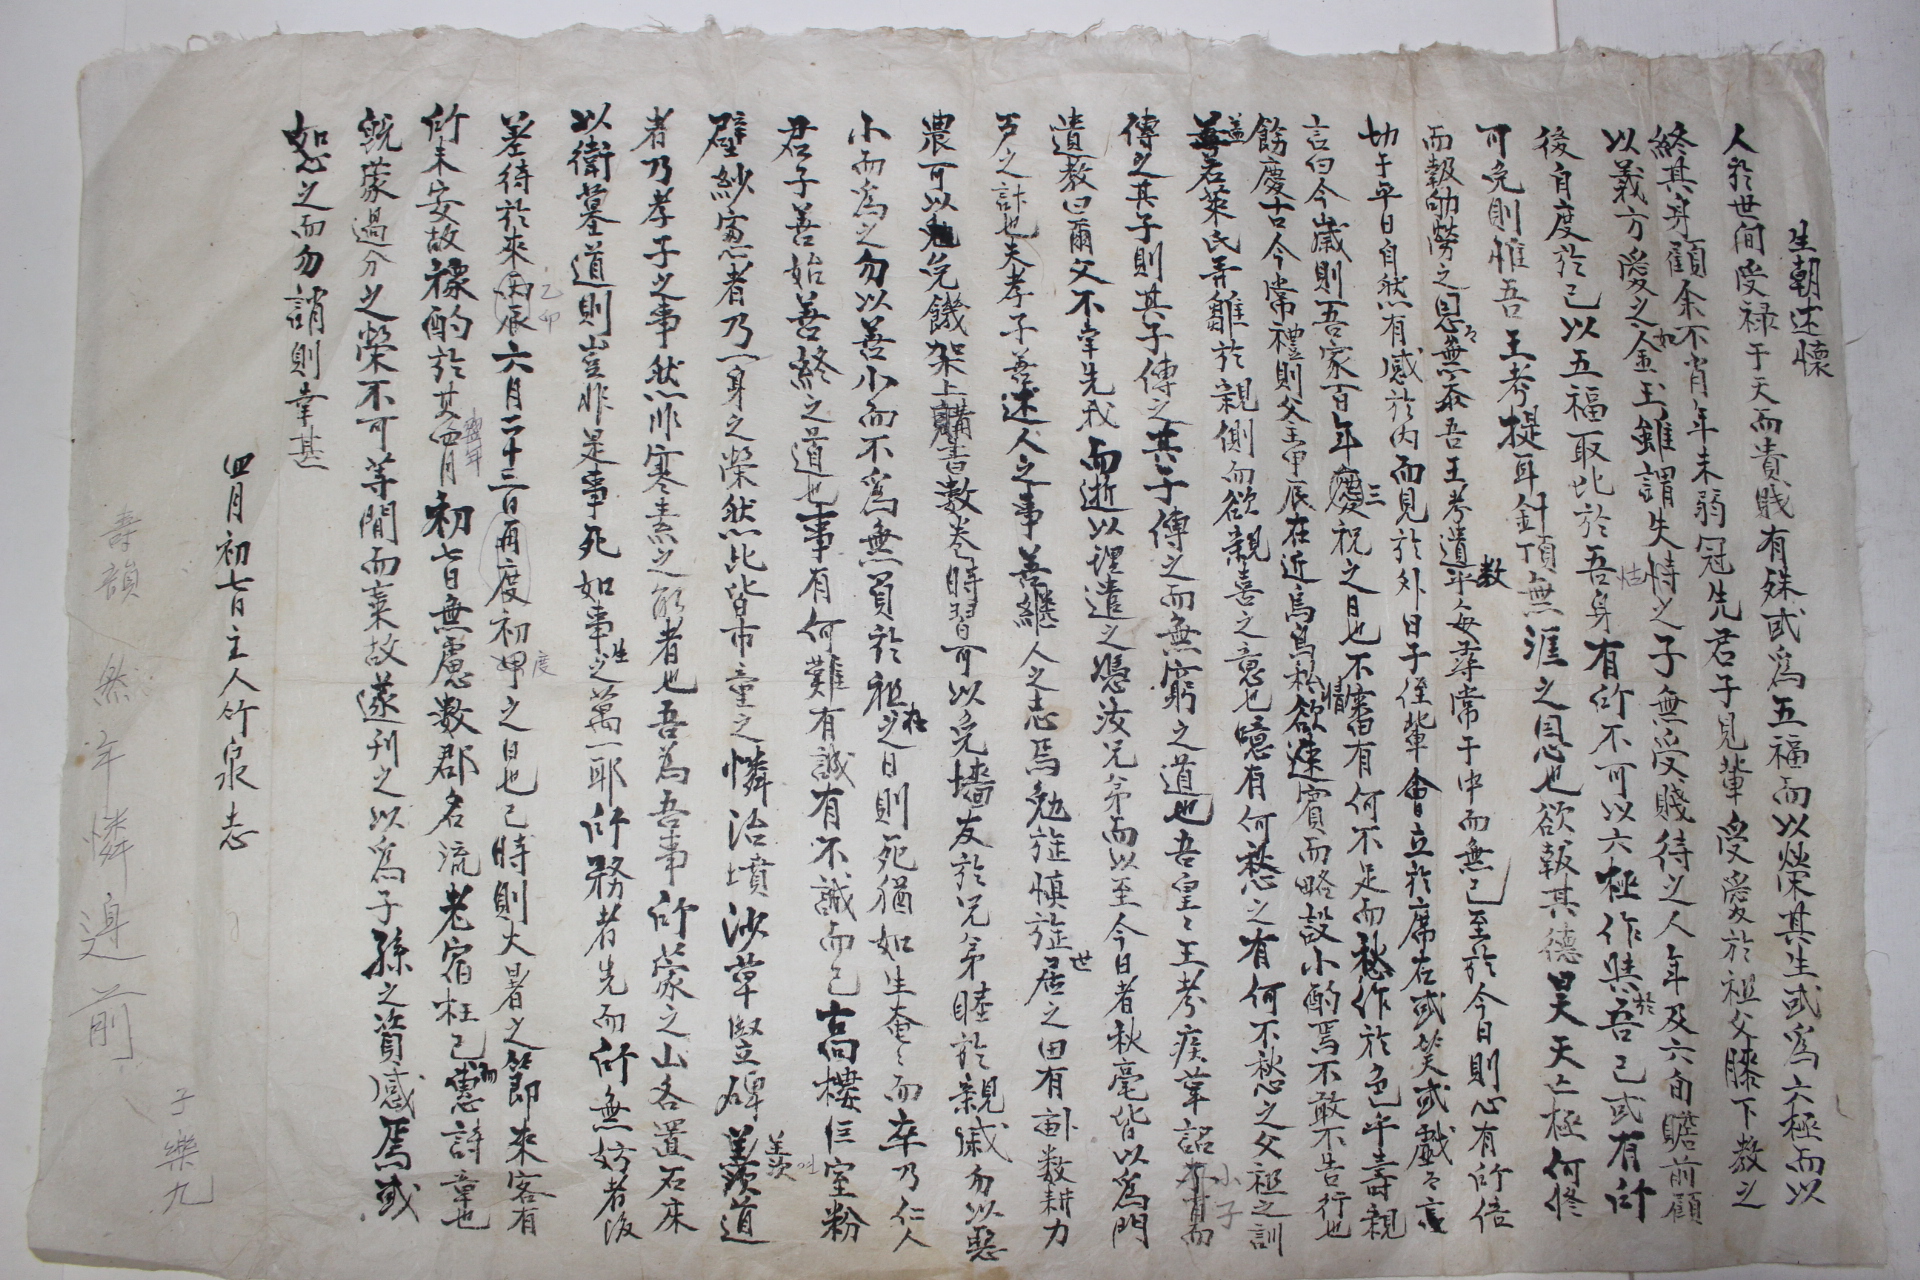 生朝述懷
人於世間受祿于天而貴賤有殊或爲五福而以榮其生或爲六極而以
終其身顧余不肖年未弱冠先君子見輩受愛於祖父膝下教之
以義方愛之如金玉雖謂失恃之子無受賤待之人年及六旬瞻前顧
後自度於己以五福取比於吾身有所不可以六極作與於吾己或有所
可免則惟吾王考提耳針頂無涯之恩也欲報其德昊天亡極何修
而報劬勞之恩無忝吾王考遺教乎每尋常于中而無已至於今日則心有所倍
切于平日自然有感於內而見於外日子侄輩會立於席右或笑或戲言
言曰今歲則吾家百年三慶祝之日也不審有何不足而愁作於色乎壽親
餘慶古今常禮則父主甲辰在近烏鳥私情欲速賓而略設小酌焉不敢不告行也
盖若萊氏弄雛於親側而欲親喜之意也噫有何愁之有何不愁之父祖之訓
傳之其子則其子傳之其子傳之而無窮之道也吾皇王考疾革詔小子
遺教曰爾父不幸先我而逝以理遣之憑汝兄弟而以至今日者秋毫皆以爲門
戶之計也夫孝子善述人之事善継人之志焉勉旃慎旃世居之田有畝数耕力
農可以免饑架上購書数卷時習可以免墻友於兄弟睦於親戚勿以惡
小而爲之勿以善小而不爲無負於祖祖之日則死猶如生奄奄而卒乃仁人
君子善始善終之道也事有何難有誠有不誠而已高樓仨室粉
壁紗窓者乃一身之榮然比皆市童之憐治墳沙草竪碑羨道
者乃孝子之事然非寒素之所者也吾為吾事所蒙之山各置石床
以衛墓道則豈非是事死如事生之萬一耶所務者先而所無妨者後
差待於來丙辰乙卯六月二十三日再度初甲度之日也已時則大暑之節來客有
所未安故檬酌於某翌年四月初七日無慮数郡名流老宿枉己而惠詩章也
旣蒙過分之榮不可等閒而棄故遂刊之以爲子孫之資感焉或
恕之而勿誚則幸甚
四月初七日主人竹泉志
子樂九
壽韻然年憐邊前